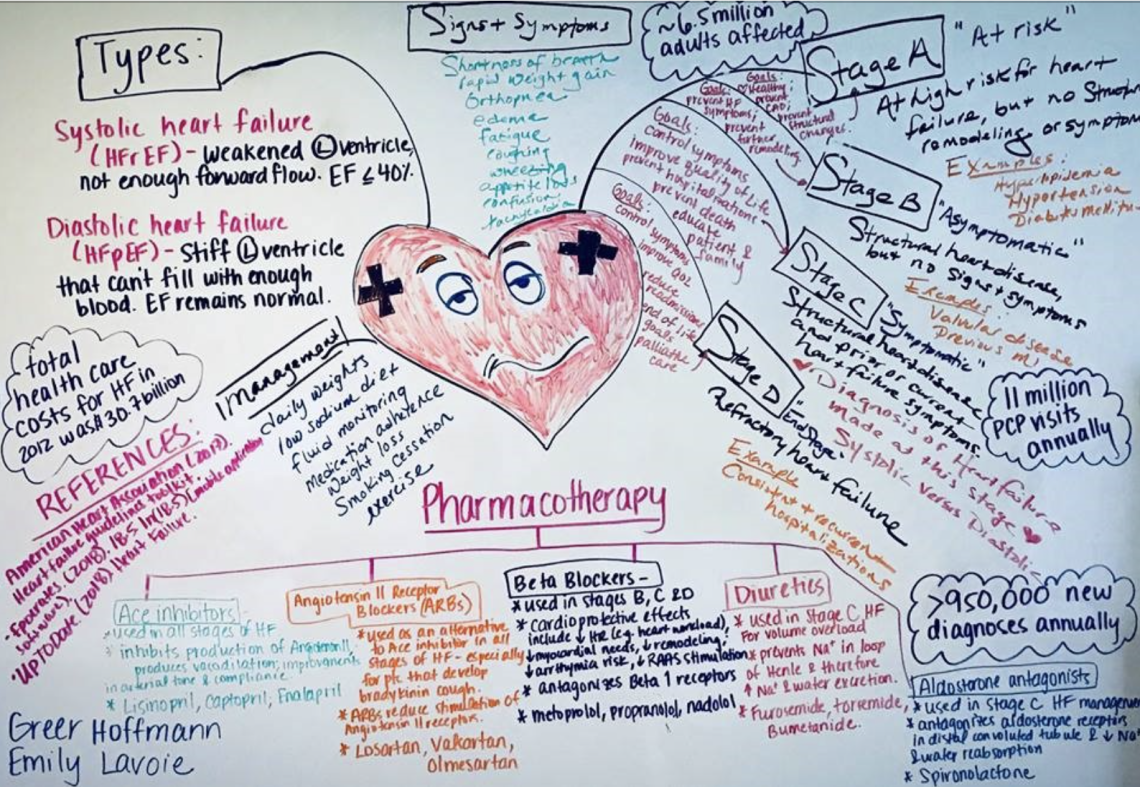 Types:
Systolic heart failure
(HFrEF) - weakened Ⓛ ventricle,
not enough forward flow. EF ≤40%.
Diastolic heart failure
(HFpEF) - Stiff Ⓛ ventricle
that can't fill with enough
blood. EF remains normal.
Signs + Symptoms
Shortness of breath
rapid weight gain
Orthopnea
edema
fatigue
coughing
wheezing
appetite loss
confusion
tachycardia
~6.5 million
adults affected
Stage A
"At risk"
At high risk for heart
failure, but no Structural
remodeling or symptoms
Examples:
Hyperlipidemia
Hypertension
Diabetes mellitus
Goals:
♡ healthy;
prevent
CAD;
prevent
structural
changes.
Stage B
"Asymptomatic"
Structural heart disease,
but no signs + symptoms
Examples:
Valvular disease
Previous MI
Goals:
prevent HF
symptoms;
prevent
further
remodeling.
Stage C
"Symptomatic"
Structural heart disease
and prior or current
heart failure symptoms
♥ Diagnosis of Heart failure
made at this stage ♥
Systolic versus Diastolic
Goals:
control symptoms
improve quality of life
prevent hospitalizations
prevent death
educate
patient &
family
Stage D
"End stage"
Refractory heart failure
Example
Consistent + recurrent
hospitalizations
Goals:
control symptoms
improve QOL
reduce
readmissions
end of life
goals
palliative
care
11 million
PCP visits
annually
>950,000 new
diagnoses annually
total
health care
costs for HF in
2012 was $30.7 billion
Management
daily weights
low sodium diet
fluid monitoring
Medication adherence
Weight loss
Smoking cessation
exercise
REFERENCES:
American Heart Association (2017).
Heart failure guidelines toolkit.
- Epocrates. (2018). 18.5 In (18.5) [mobile application
software].
- UPTODATE. (2018). Heart Failure.
Pharmacotherapy
Ace inhibitors-
* used in all stages of HF
* inhibits production of Angiotensin II,
produces vasodilation; improvements
in arterial tone & compliance.
* Lisinopril, Captopril, Enalapril
Angiotensin II Receptor
Blockers (ARBs)
* used as an alternative
to Ace inhibitor in all
stages of HF - especially
for pts that develop
bradykinin cough.
* ARBs reduce stimulation of
Angiotensin II receptors.
* Losartan, Valsartan,
Olmesartan
Beta Blockers -
* used in stages B, C & D
* cardioprotective effects
include ↓ HR (e.g. heart workload),
↓ myocardial needs, ↓ remodeling;
↓ arrythmia risk, ↓ RAAS stimulation
* antagonizes Beta 1 receptors
* metoprolol, propranolol, nadolol
Diuretics
* used in Stage C, HF
For volume overload
* prevents Na⁺ in loop
of Henle & therefore
↑ Na⁺ & water excretion.
* Furosemide, torsemide,
Bumetanide.
Aldosterone antagonists
* used in stage C HF management
* antagonizes aldosterone receptors
in distal convoluted tubule & ↓ Na⁺
& water reabsorption
* Spironolactone
Greer Hoffmann
Emily Lavoie